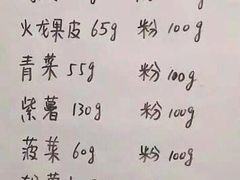 火龙果皮 65g 粉 100g
青菜 55g 粉 100g
紫薯 130g 粉 100g
菠菜 60g 粉 100g